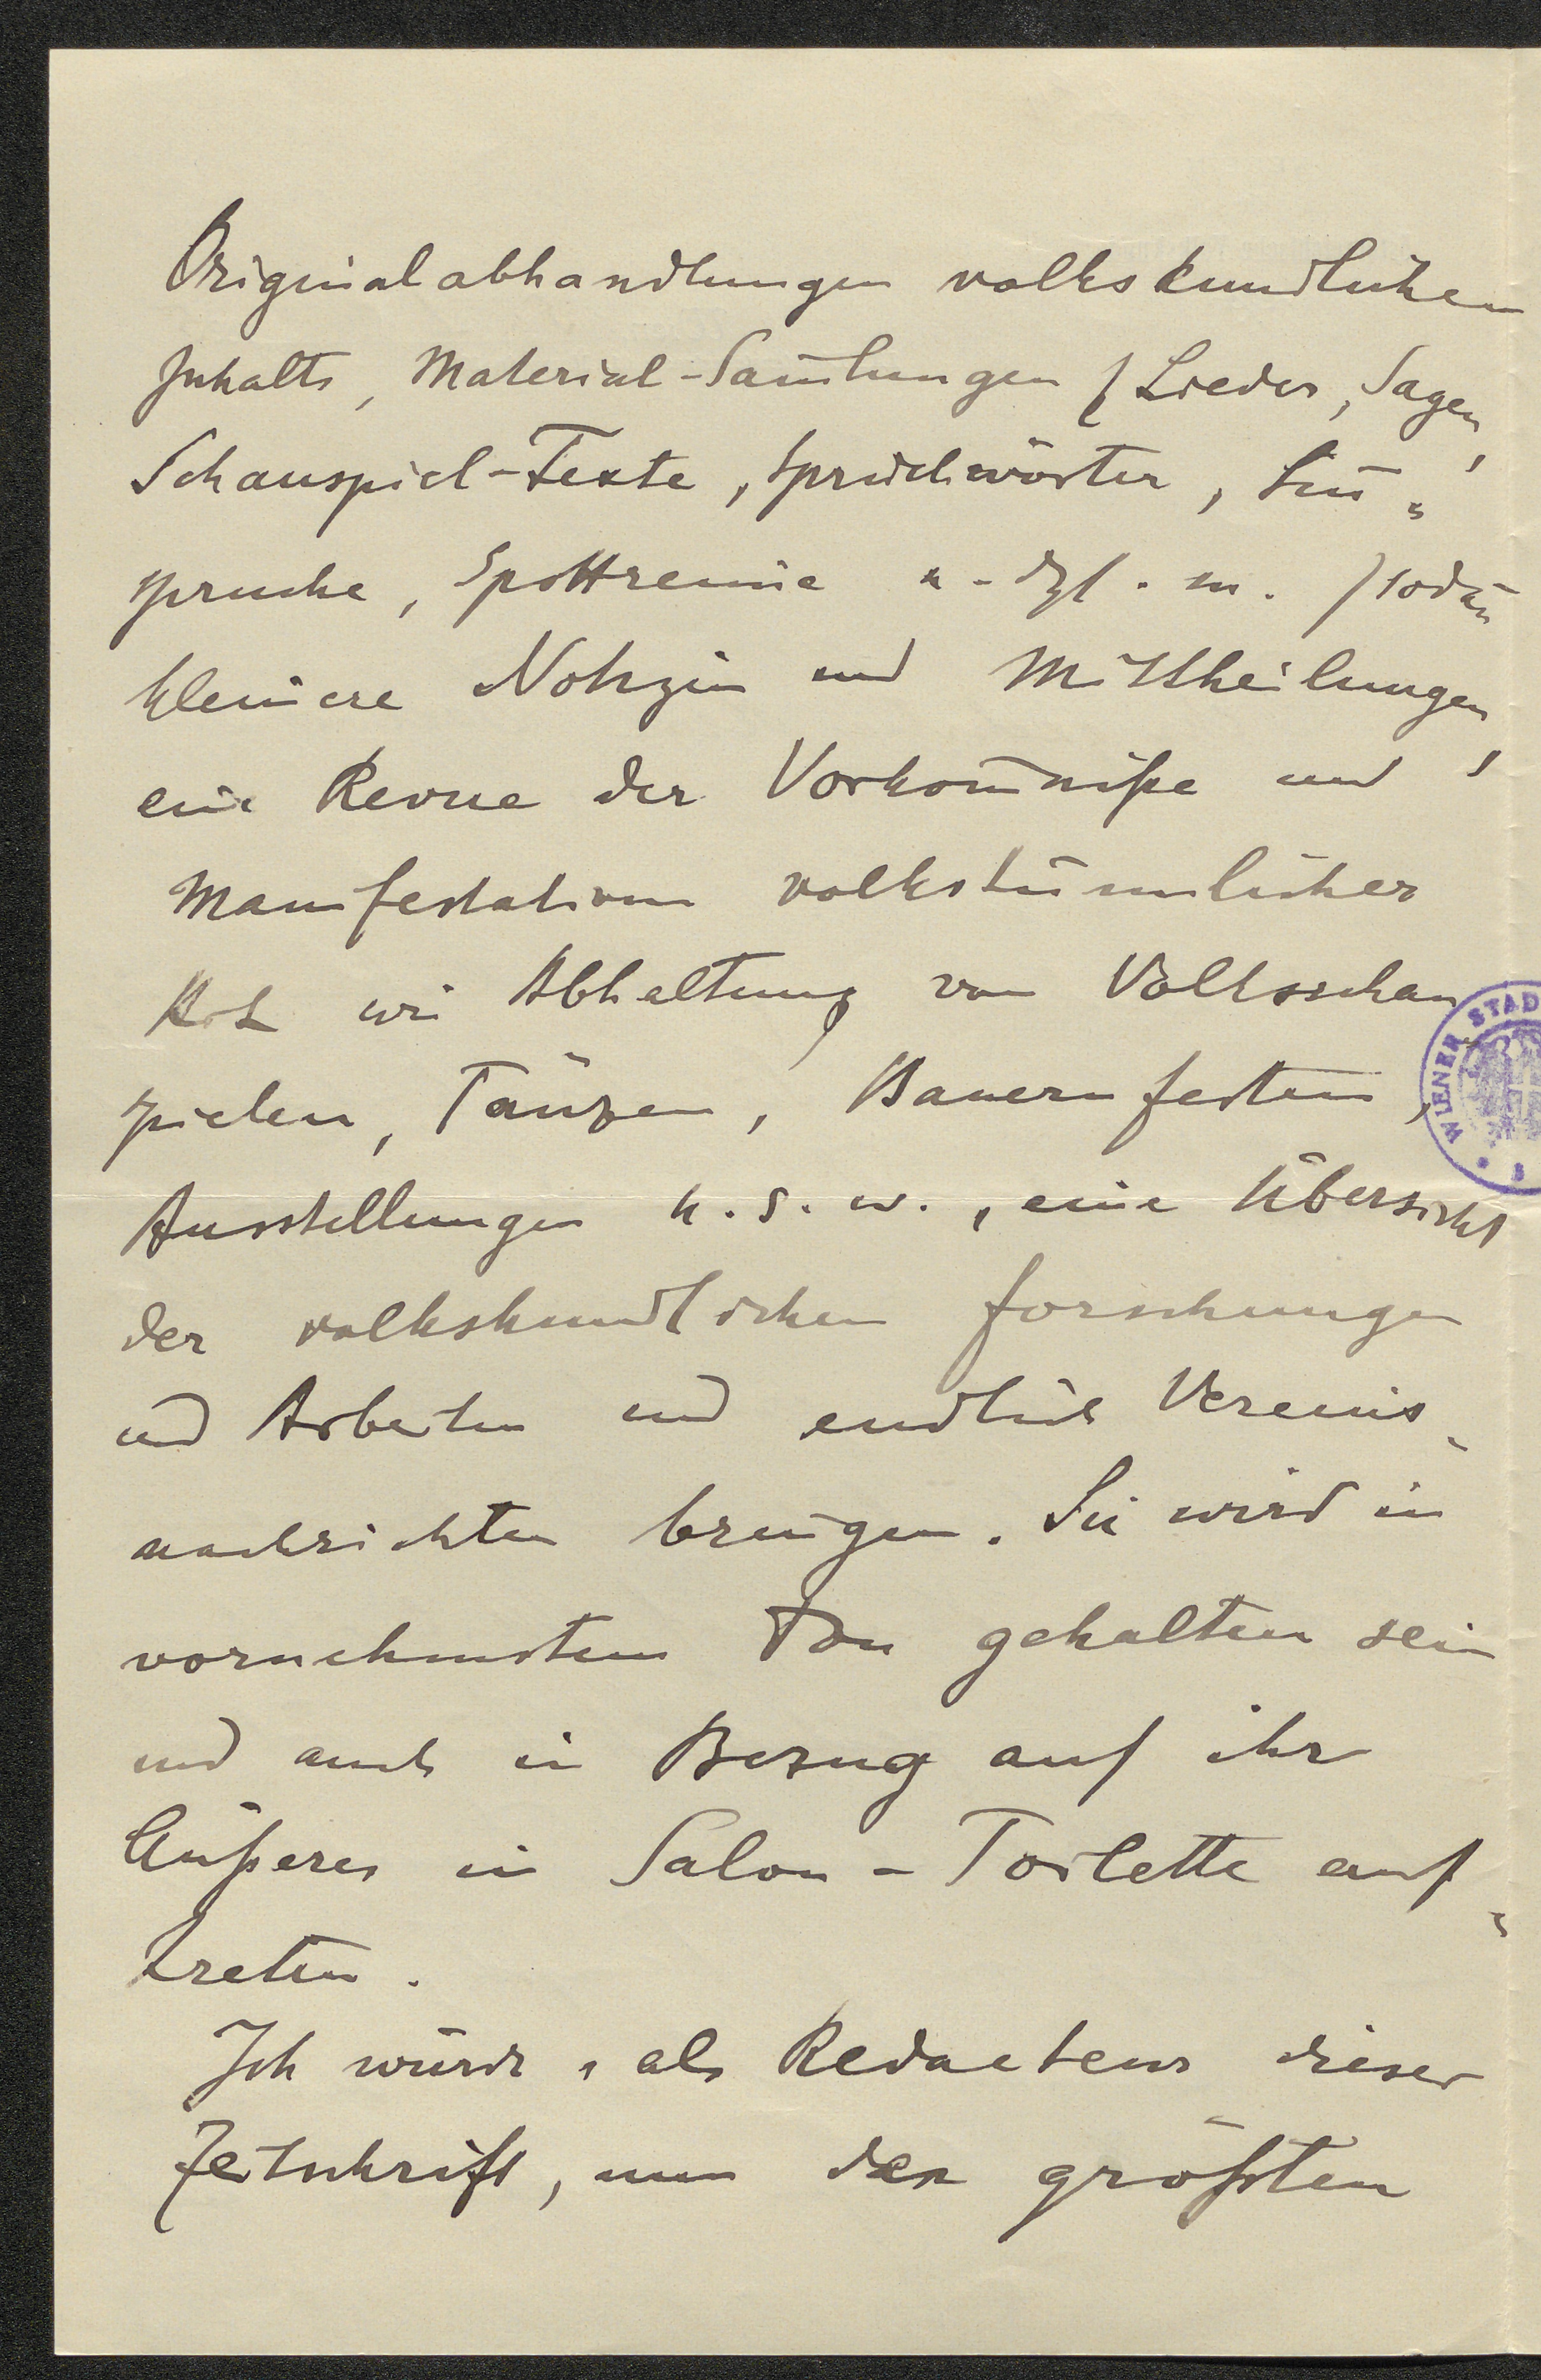 Originalabhandlungen volkskundlichen
Inhalts, Material-Sam̄lungen (Lieder, Sagen,
Schauspiel-Texte, Sprüchwörter, Sin̄-
sprüche, Spottreime u. dgl. m.) sodan̄
kleinere Notizen und Mittheilungen,
eine Revue der Vorkom̄niße und
Manifestationen volkstümlicher
Art wie Abhaltung von Volksschau
spielen, Tänzen, Bauernfesten,
Ausstellungen u. s. w., eine Übersicht
der volkskundlichen Forschungen
und Arbeiten und endlich Vereins-
nachrichten bringen. Sie wird in
vornehmstem Ton gehalten sein
und auch in Bezug auf ihr
Äußeres in Salon-Toilette auf-
treten.
Ich würde, als Redacteur dieser
Zeitschrift, nun den größten
WIENER STAD